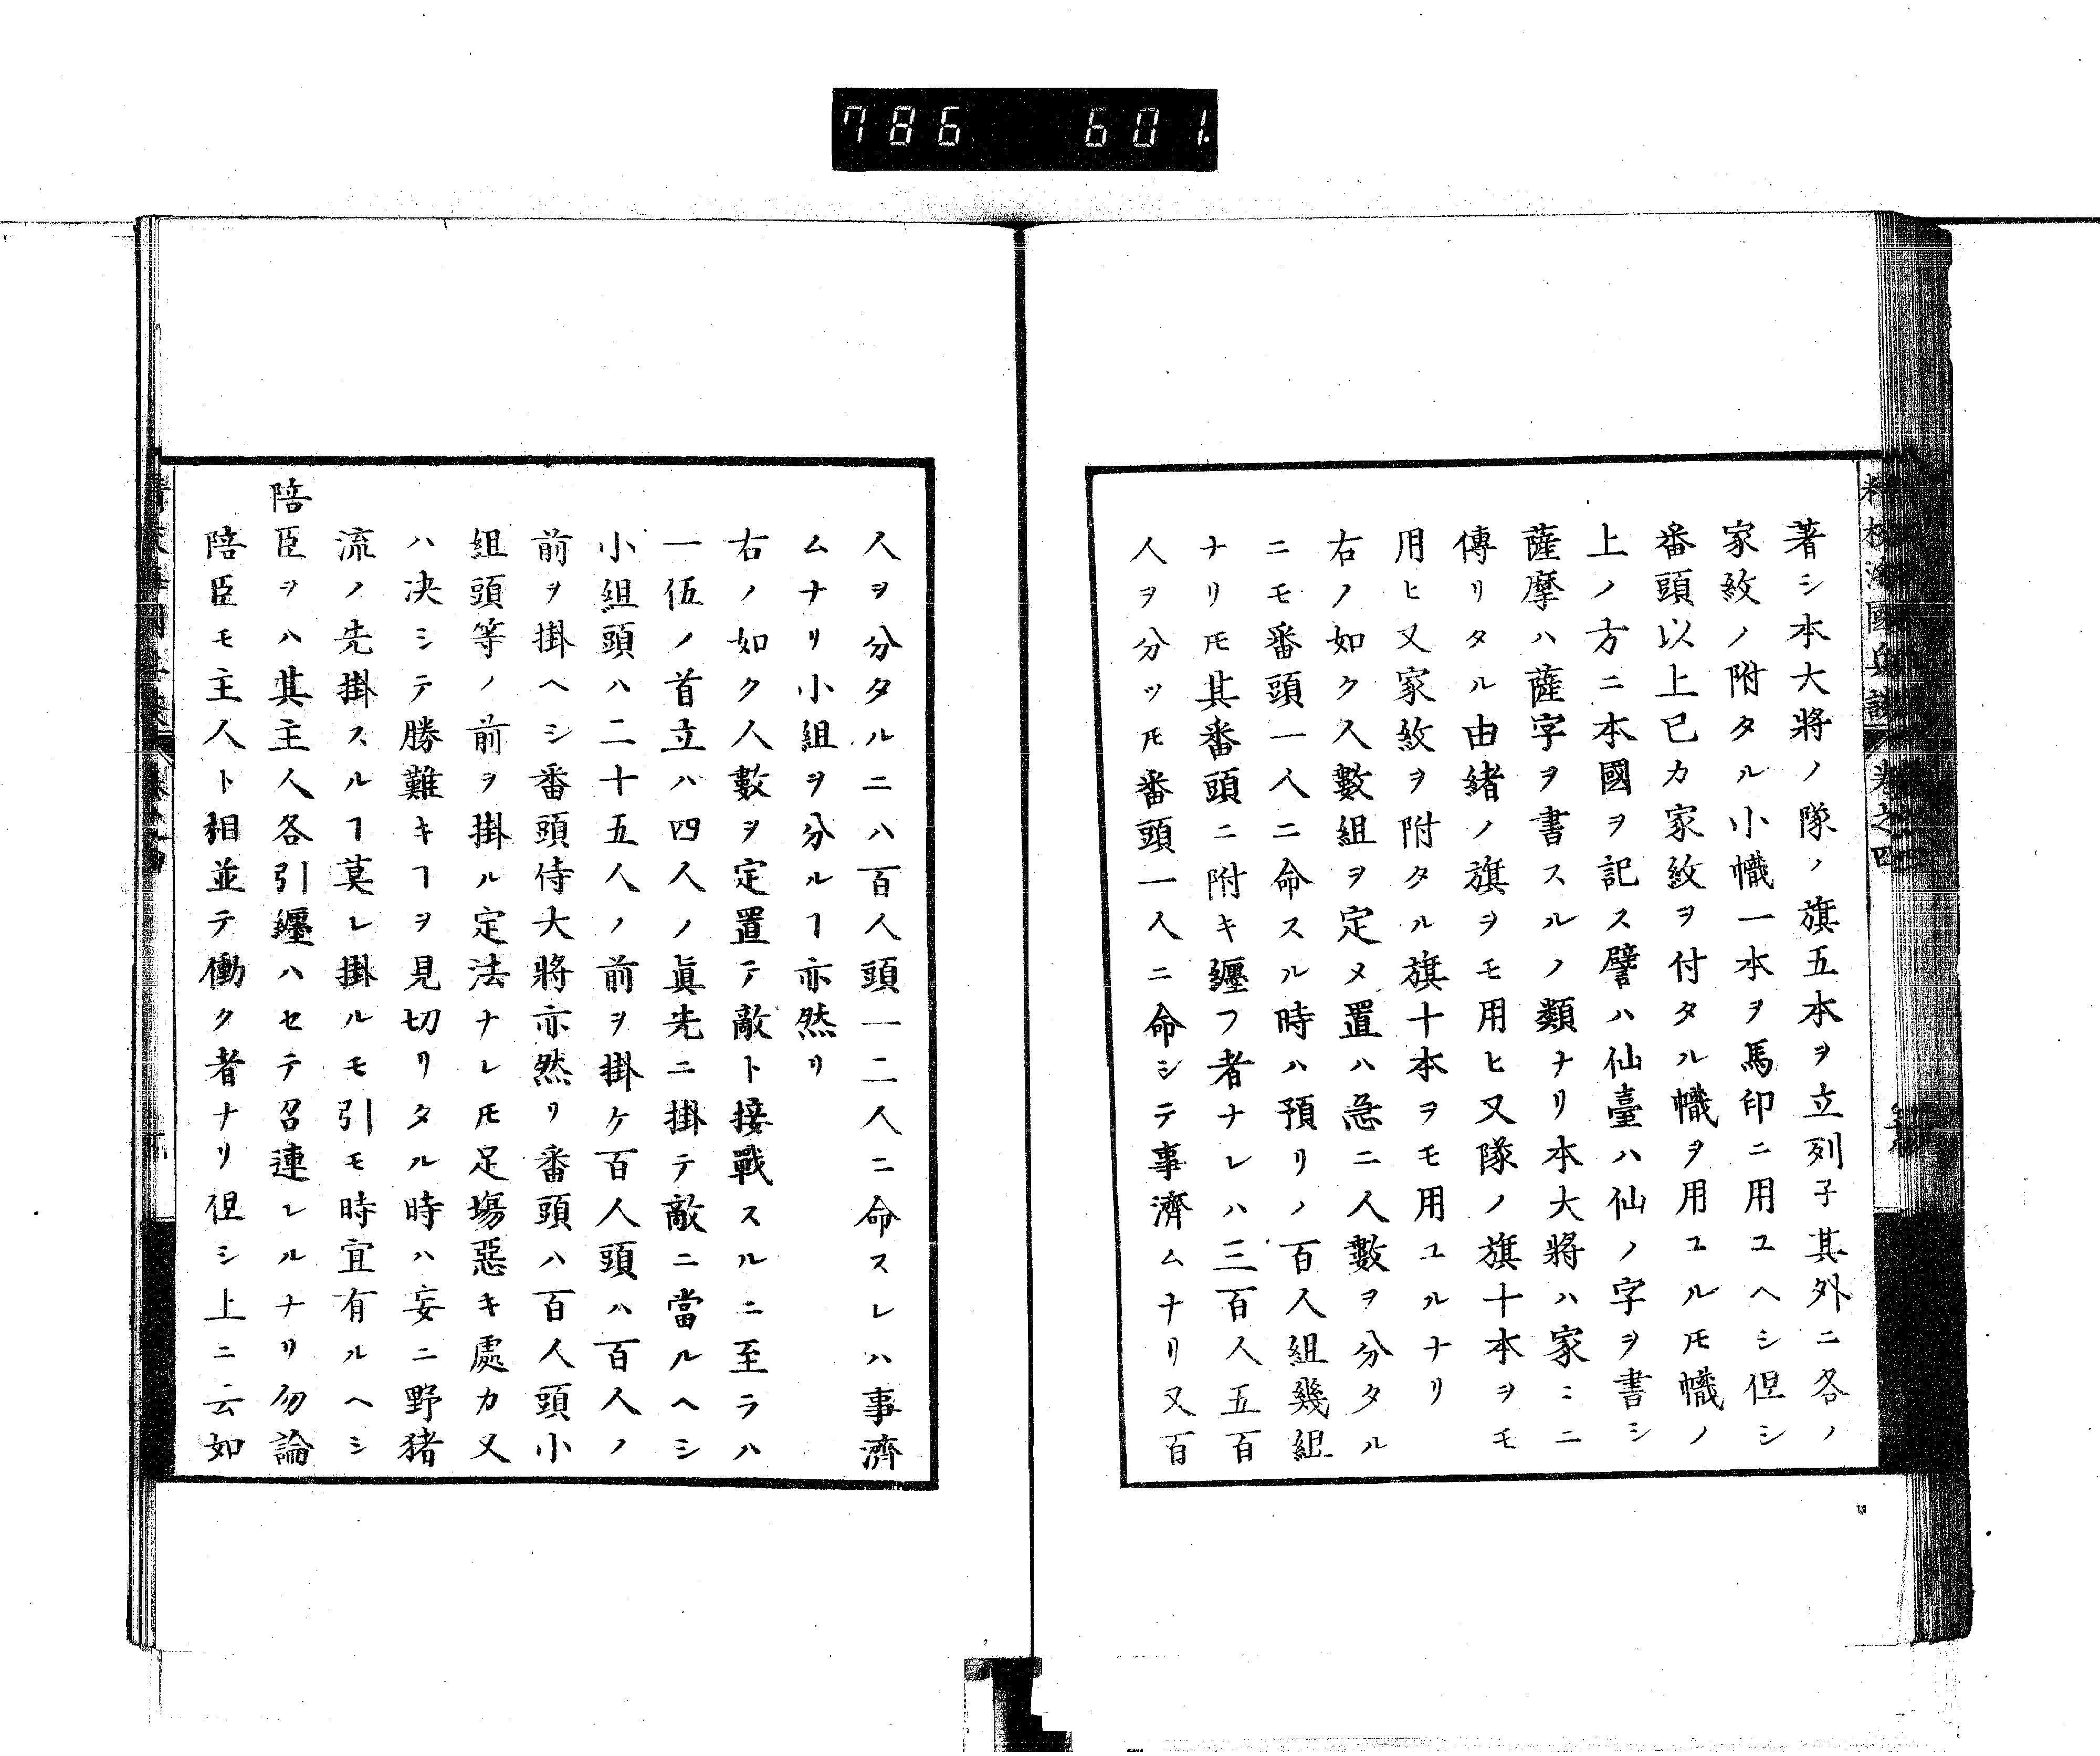 786 601
精校海國兵談 卷之四
著シ本大將ノ隊ノ旗五本ヲ立列子其外ニ各ノ
家紋ノ附タル小幟一本ヲ馬印ニ用ユヘシ但シ
番頭以上已カ家紋ヲ付タル幟ヲ用ユルモ幟ノ
上ノ方ニ本國ヲ記ス譬ハ仙臺ハ仙ノ字ヲ書シ
薩摩ハ薩字ヲ書スルノ類ナリ本大將ハ家ニニ
傳リタル由緒ノ旗ヲモ用ヒ又隊ノ旗十本ヲモ
用ヒ又家紋ヲ附タル旗十本ヲモ用ユルナリ
右ノ如ク人數組ヲ定メ置ハ急ニ人數ヲ分タル
ニモ番頭一人ニ命スル時ハ預リノ百人組幾組
ナリ𪜈其番頭ニ附キ纏フ者ナレハ三百人五百
人ヲ分ツ𪜈番頭一人ニ命シテ事濟ムナリ又百
人ヲ分タルニハ百人頭一二人ニ命スレハ事濟
ムナリ小組ヲ分ルヿ亦然リ
右ノ如ク人數ヲ定置テ敵ト接戰スルニ至ラハ
一伍ノ首立ハ四人ノ眞先ニ掛テ敵ニ當ルヘシ
小組頭ハ二十五人ノ前ヲ掛ケ百人頭ハ百人ノ
前ヲ掛ヘシ番頭侍大將亦然リ番頭ハ百人頭小
組頭等ノ前ヲ掛ル定法ナレ𪜈足塲惡キ處カ又
ハ决シテ勝難キヿヲ見切リタル時ハ妄ニ野猪
流ノ先掛スルヿ莫レ掛ルモ引モ時宜有ルヘシ
陪臣ヲハ其主人各引纏ハセテ召連レルナリ勿論
陪臣モ主人ト相並テ働ク者ナリ但シ上ニ云如